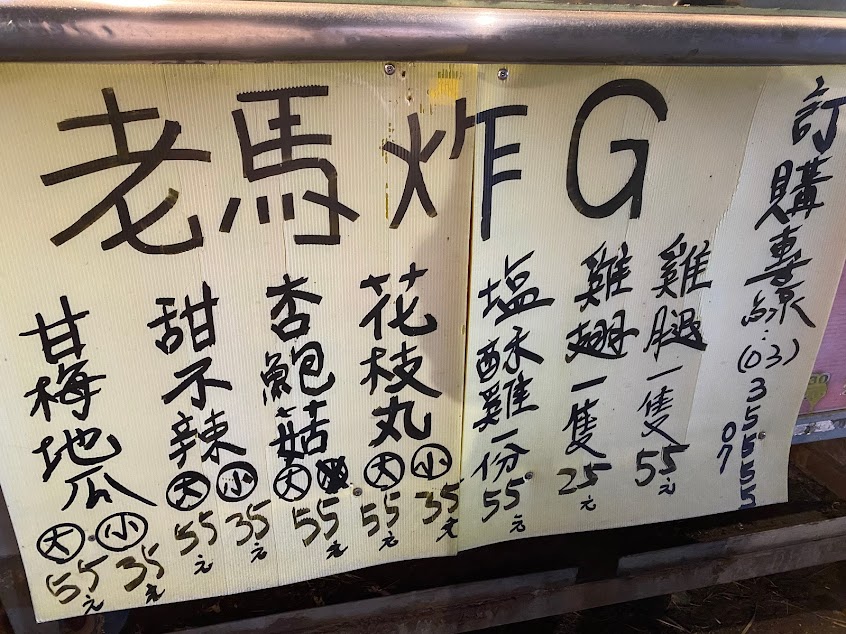 老馬炸G
訂購專線:(03)35555
07
雞腿一隻55元
雞翅一隻25元
塩酥雞一份55元
花枝丸
大55元
小35元
杏鮑菇
大55元
甜不辣
大55元
小35元
甘梅地瓜
大55元
小35元